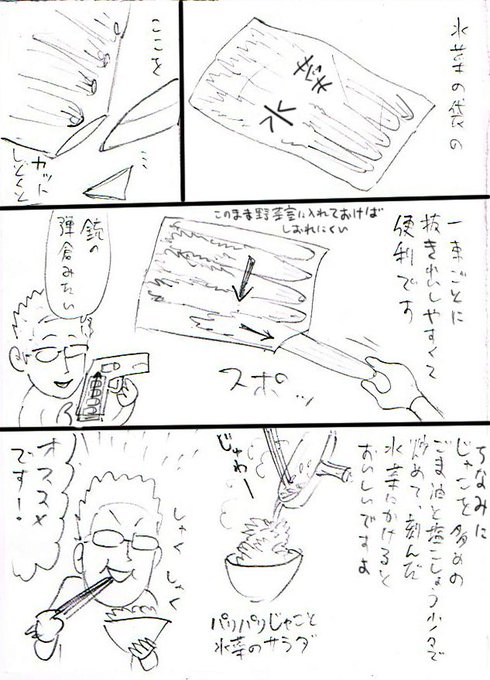 水菜の袋の
水菜
ここを
カット
スルスル
一束ごとに
抜き出しやすくて
便利です
このまま野菜室に入れておけば
しおれにくい
スポッ
銃の
弾倉みたい
ちなみに
じゃこを多めの
ごま油と塩こしょう少々で
炒めて、刻んだ
水菜にかけると
おいしいですよ
じゅわー
パリパリじゃこと
水菜のサラダ
しゃく
しゃく
オススメ
です!